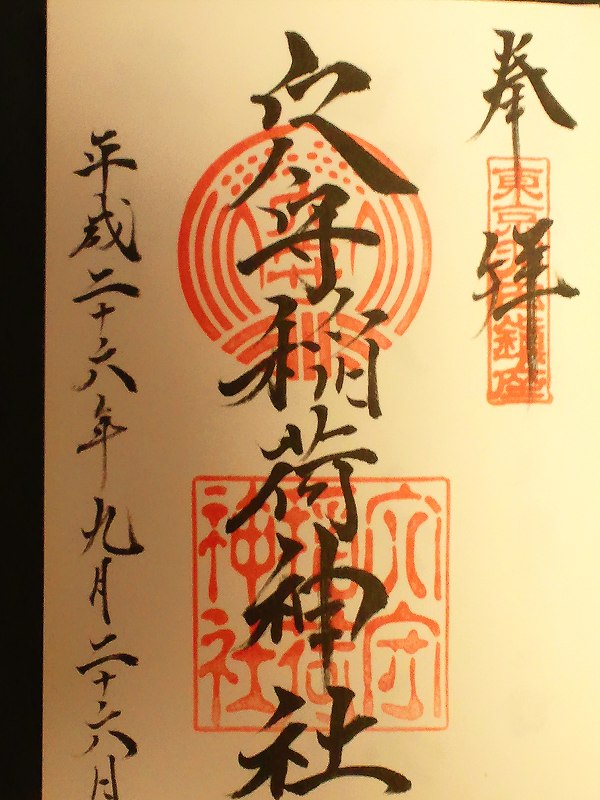 奉拝
東京羽田鎮座
穴守稲荷神社
穴守
稲荷
神社
平成二十六年九月二十六日